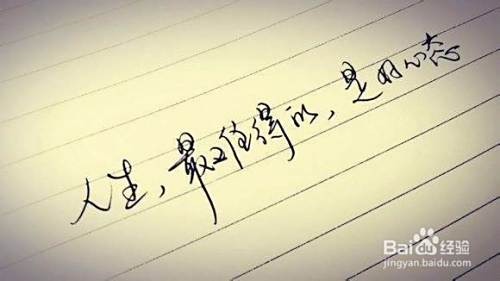 人生，最值得的，是好心态
Baidu经验
jingyan.baidu.com